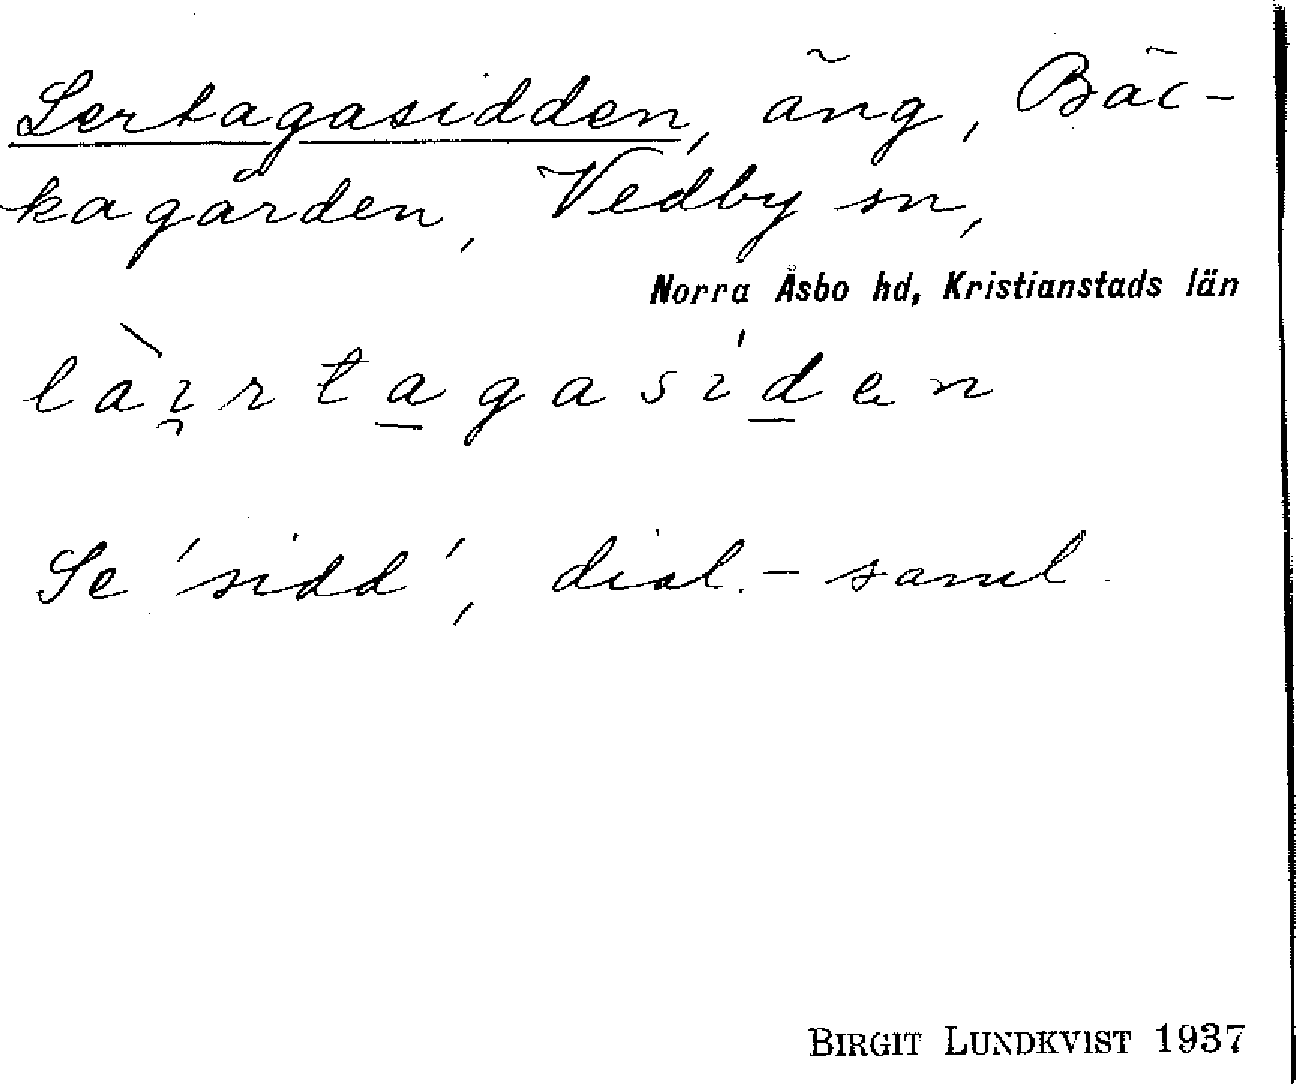 Lertagasidden, äng, Bäc-
kagården, Vedby sn,
Norra Åsbo hd, Kristianstads län
lài̯rta̲gasíd̲en
Se 'sidd', dial.-saml.
BIRGIT LUNDKVIST 1937